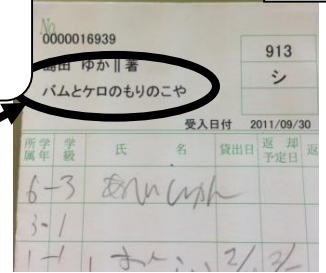 No
0000016939
913
島田 ゆか‖著
シ
バムとケロのもりのこや
受入日付 2011/09/30
所属 学年 学級 氏 名 貸出日 返却予定日 返
6-3
3-1
1-1 2/ 3/